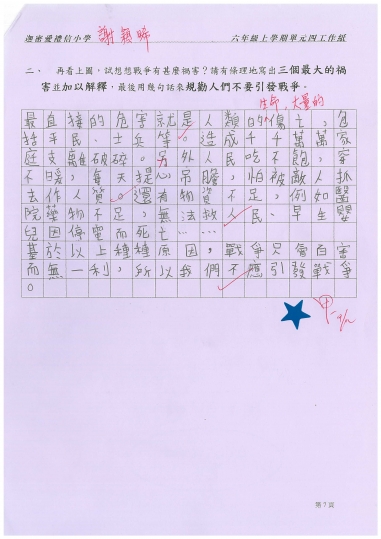 迦密愛禮信小學 謝穎晞 六年級上學期單元四工作紙
二、 再看上圖,試想想戰爭有甚麼禍害?請有條理地寫出三個最大的禍
害並加以解釋,最後用幾句話來規勸人們不要引發戰爭。
生命,大量的
最直接的危害就是人類的傷亡,包
括平民、士兵等。造成千千萬萬家
庭支離破碎。另外人民吃不飽,穿
不暖,每天提心吊膽,怕被敵人抓
去作人質。還有物資不足,例如醫
院藥物不足,無法救人民、早生嬰
兒因停電而死亡……
基於以上種種原因,戰爭只會百害
而無一利,所以我們不應引發戰爭
。
甲-
第7頁